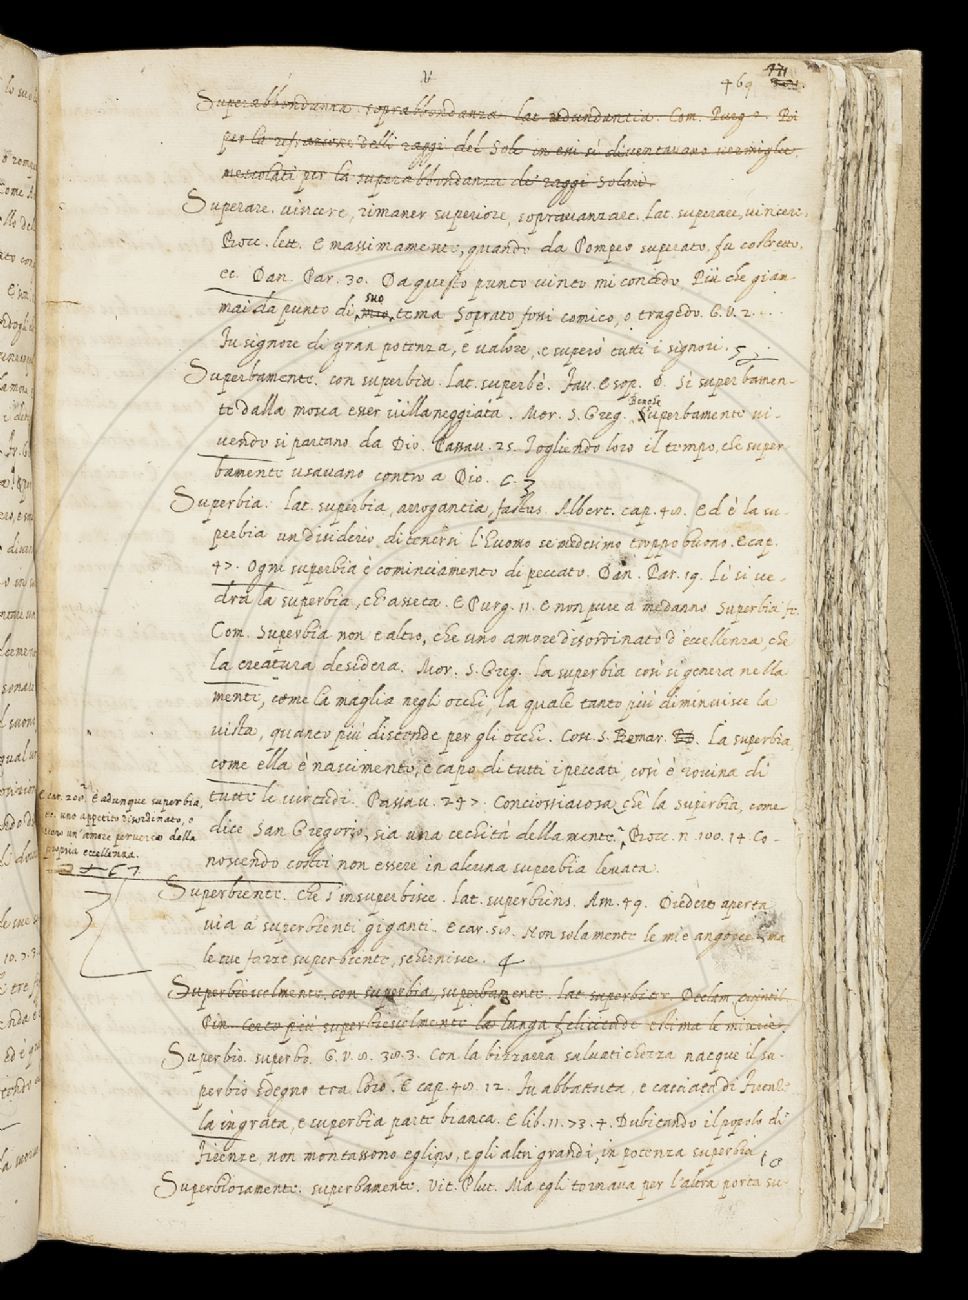 469
Superabbondanza. soprabbondanza. lat. redundantia. Com. Purg. Poi
per la riflessione delli raggi del Sole in essi si diventavano vermiglie
mescolati per la superabbondanza de' raggi Solari.
Superare. vincere, rimaner superiore, sopravanzare. Lat. superare, vincere.
Rocc. lett. E massimamente, quando da Pompeo superato, fu costretto,
ec. Dan. Par. 30. Da questo punto vinto mi concedo Più che giam-
mai da punto di suo tema Soprato fossi comico, o tragedo. G.V. 2.
Fu signore di gran potenza, e valore, e superò tutti i signori.
Superbamente. con superbia. Lat. superbè. Fav. Esop. Sì superbamen-
te dalla mosca esser villaneggiata. Mor. S. Greg. Superbamente vi-
vendo si partano da Dio. Passav. 25. Togliendo loro il tempo, che super-
bamente usavano contro a Dio.
Superbia. Lat. superbia, arrogantia, fastus. Alberc. cap. 40. Ed è la su-
perbia un disiderio di tenersi l'huomo se medesimo troppo buono. E cap.
47. Ogni superbia è cominciamento di peccato. Dan. Par. 19. Lì si ve-
drà la superbia, ch'asseta. E Purg. 11. E non pure a me danno Superbia fe
Com. Superbia non è altro, che uno amore disordinato d'eccellenza, che
la creatura desidera. Mor. S. Greg. la superbia così si genera nella
mente, come la maglia negli occhi, la quale tanto più diminuisce la
vista, quanto più discende per gli occhi. Cost. S. Bernar. La superbia,
come ella è nascimento, e capo di tutti i peccati, così è rovina di
tutte le vircudi. Passav. 247. Conciossiacosa chè la superbia, come
dice San Gregorio, sia una cechità della mente. Bocc. n. 100. 14. Co-
noscendo costei non essere in alcuna superbia levata.
E car. 200. È adunque superbia,
ec. uno appetito disordinato, o
vero un' amore perverso della
propria eccellenza.
Superbiente. Che s'insuperbisce. Lat. superbiens. Am. 49. Diedero aperta
via a' superbienti giganti. E car. 50. Non solamente le mie angosce, ma
le tue forze superbiente, schernisce.
Superbiosolmente. con superbia, superbamente. Lat. superbiter. Declam. Quintil.
Pin. Certo più superbiosolmente la lunga felicitade estima le miserie.
Superbio. superbo. G.V. 8. 38. 3. Con la bizzarra salvatichezza nacque il su-
perbio sdegno tra loro. E cap. 48. 12. Fu abbattuta, e cacciata di Firenze
la ingrata, e superbia parte bianca. E lib. 11. 73. 4. Dubitando il popolo di
Firenze, non montassono eglino, e gli altri grandi, in potenza superbia
Superbiosamente. superbamente. Vit. Plut. Ma egli tornava per l'altra porta su-